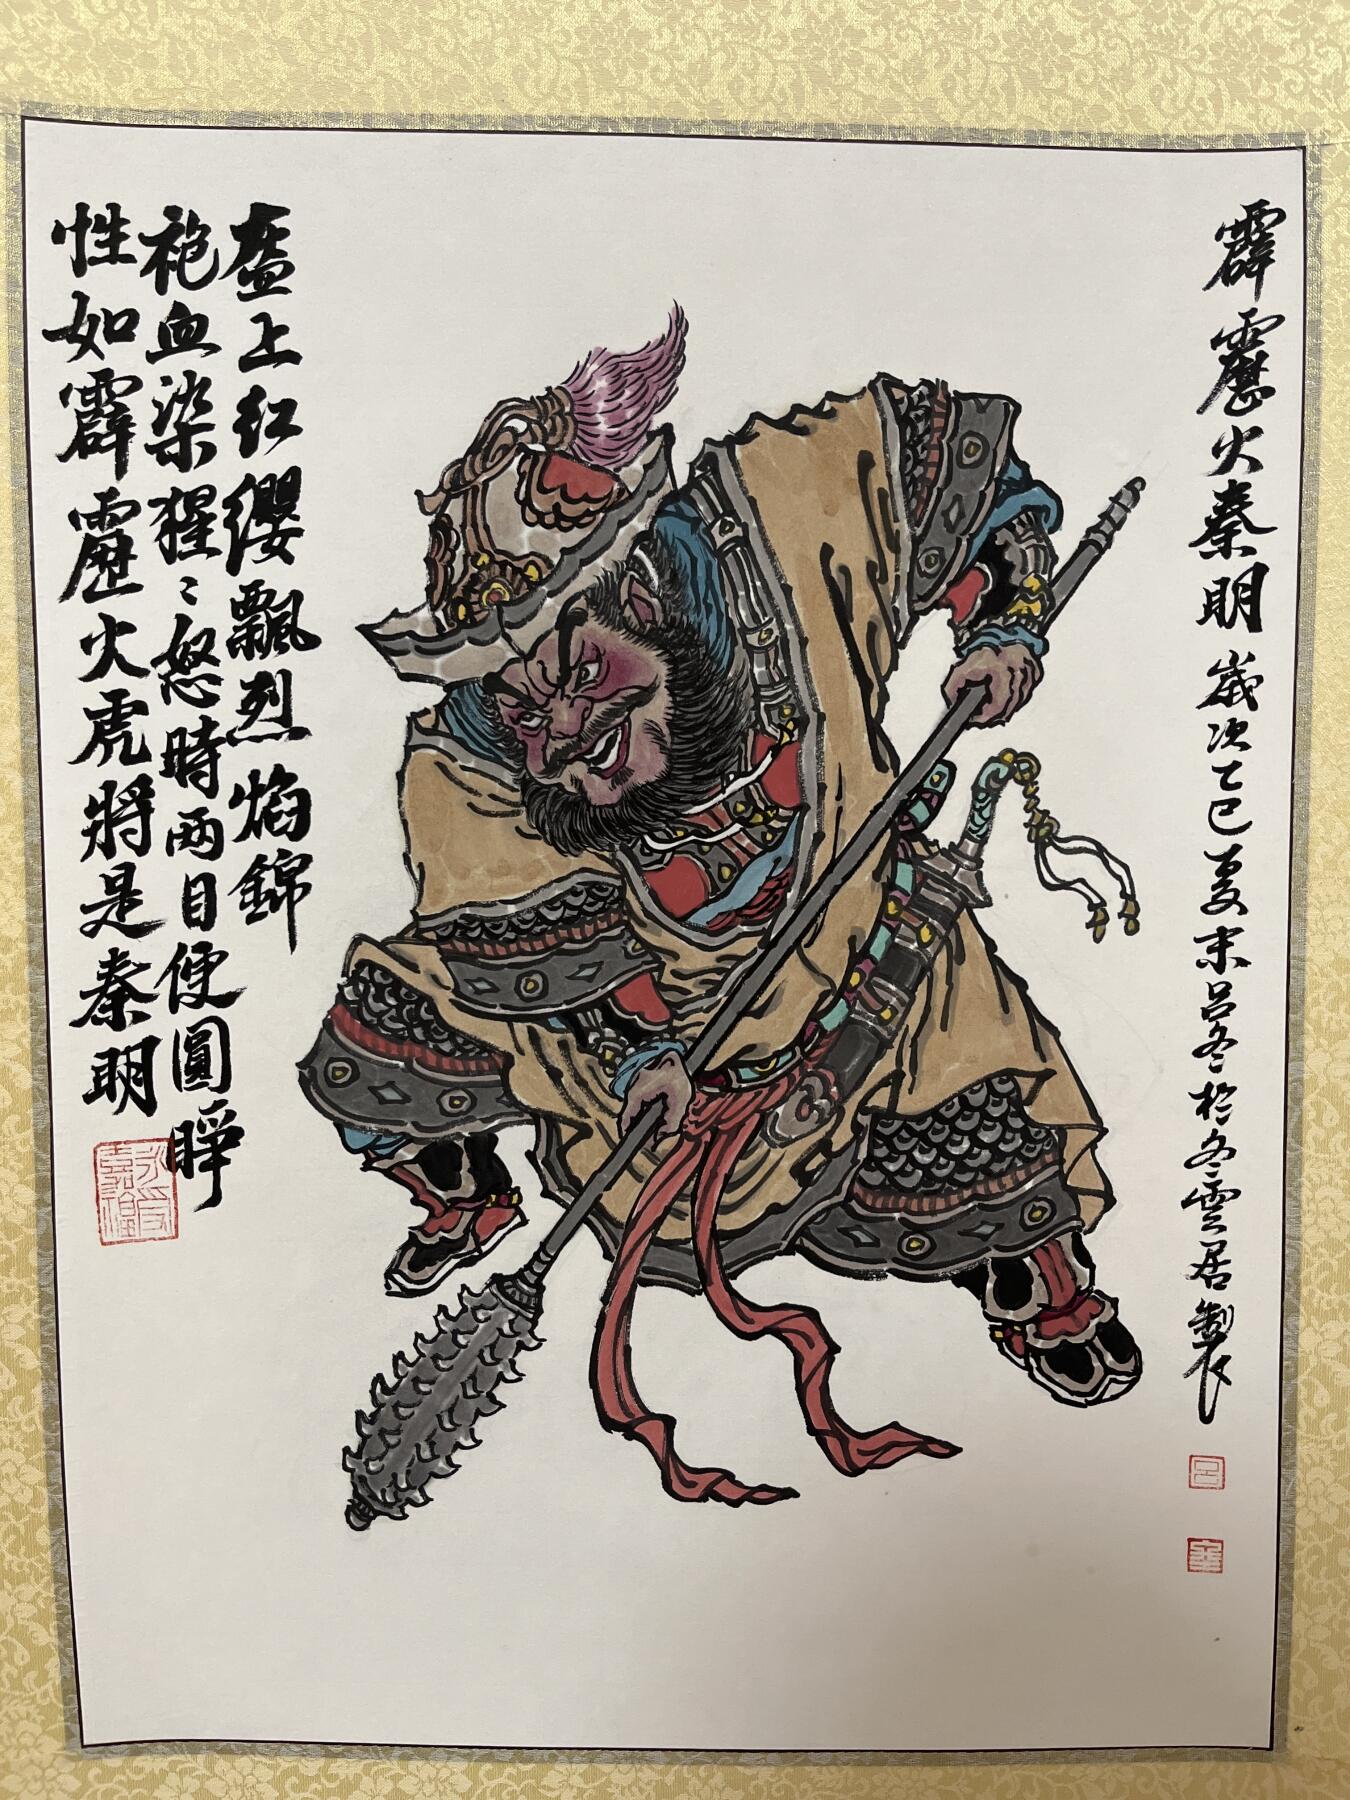 霹靂火秦明 歲次乙巳夏末呂冬於冬雲居製
盔上红纓飄烈焰錦
袍血染猩〻怒時两目便圓睜
性如霹靂火虎將是秦明